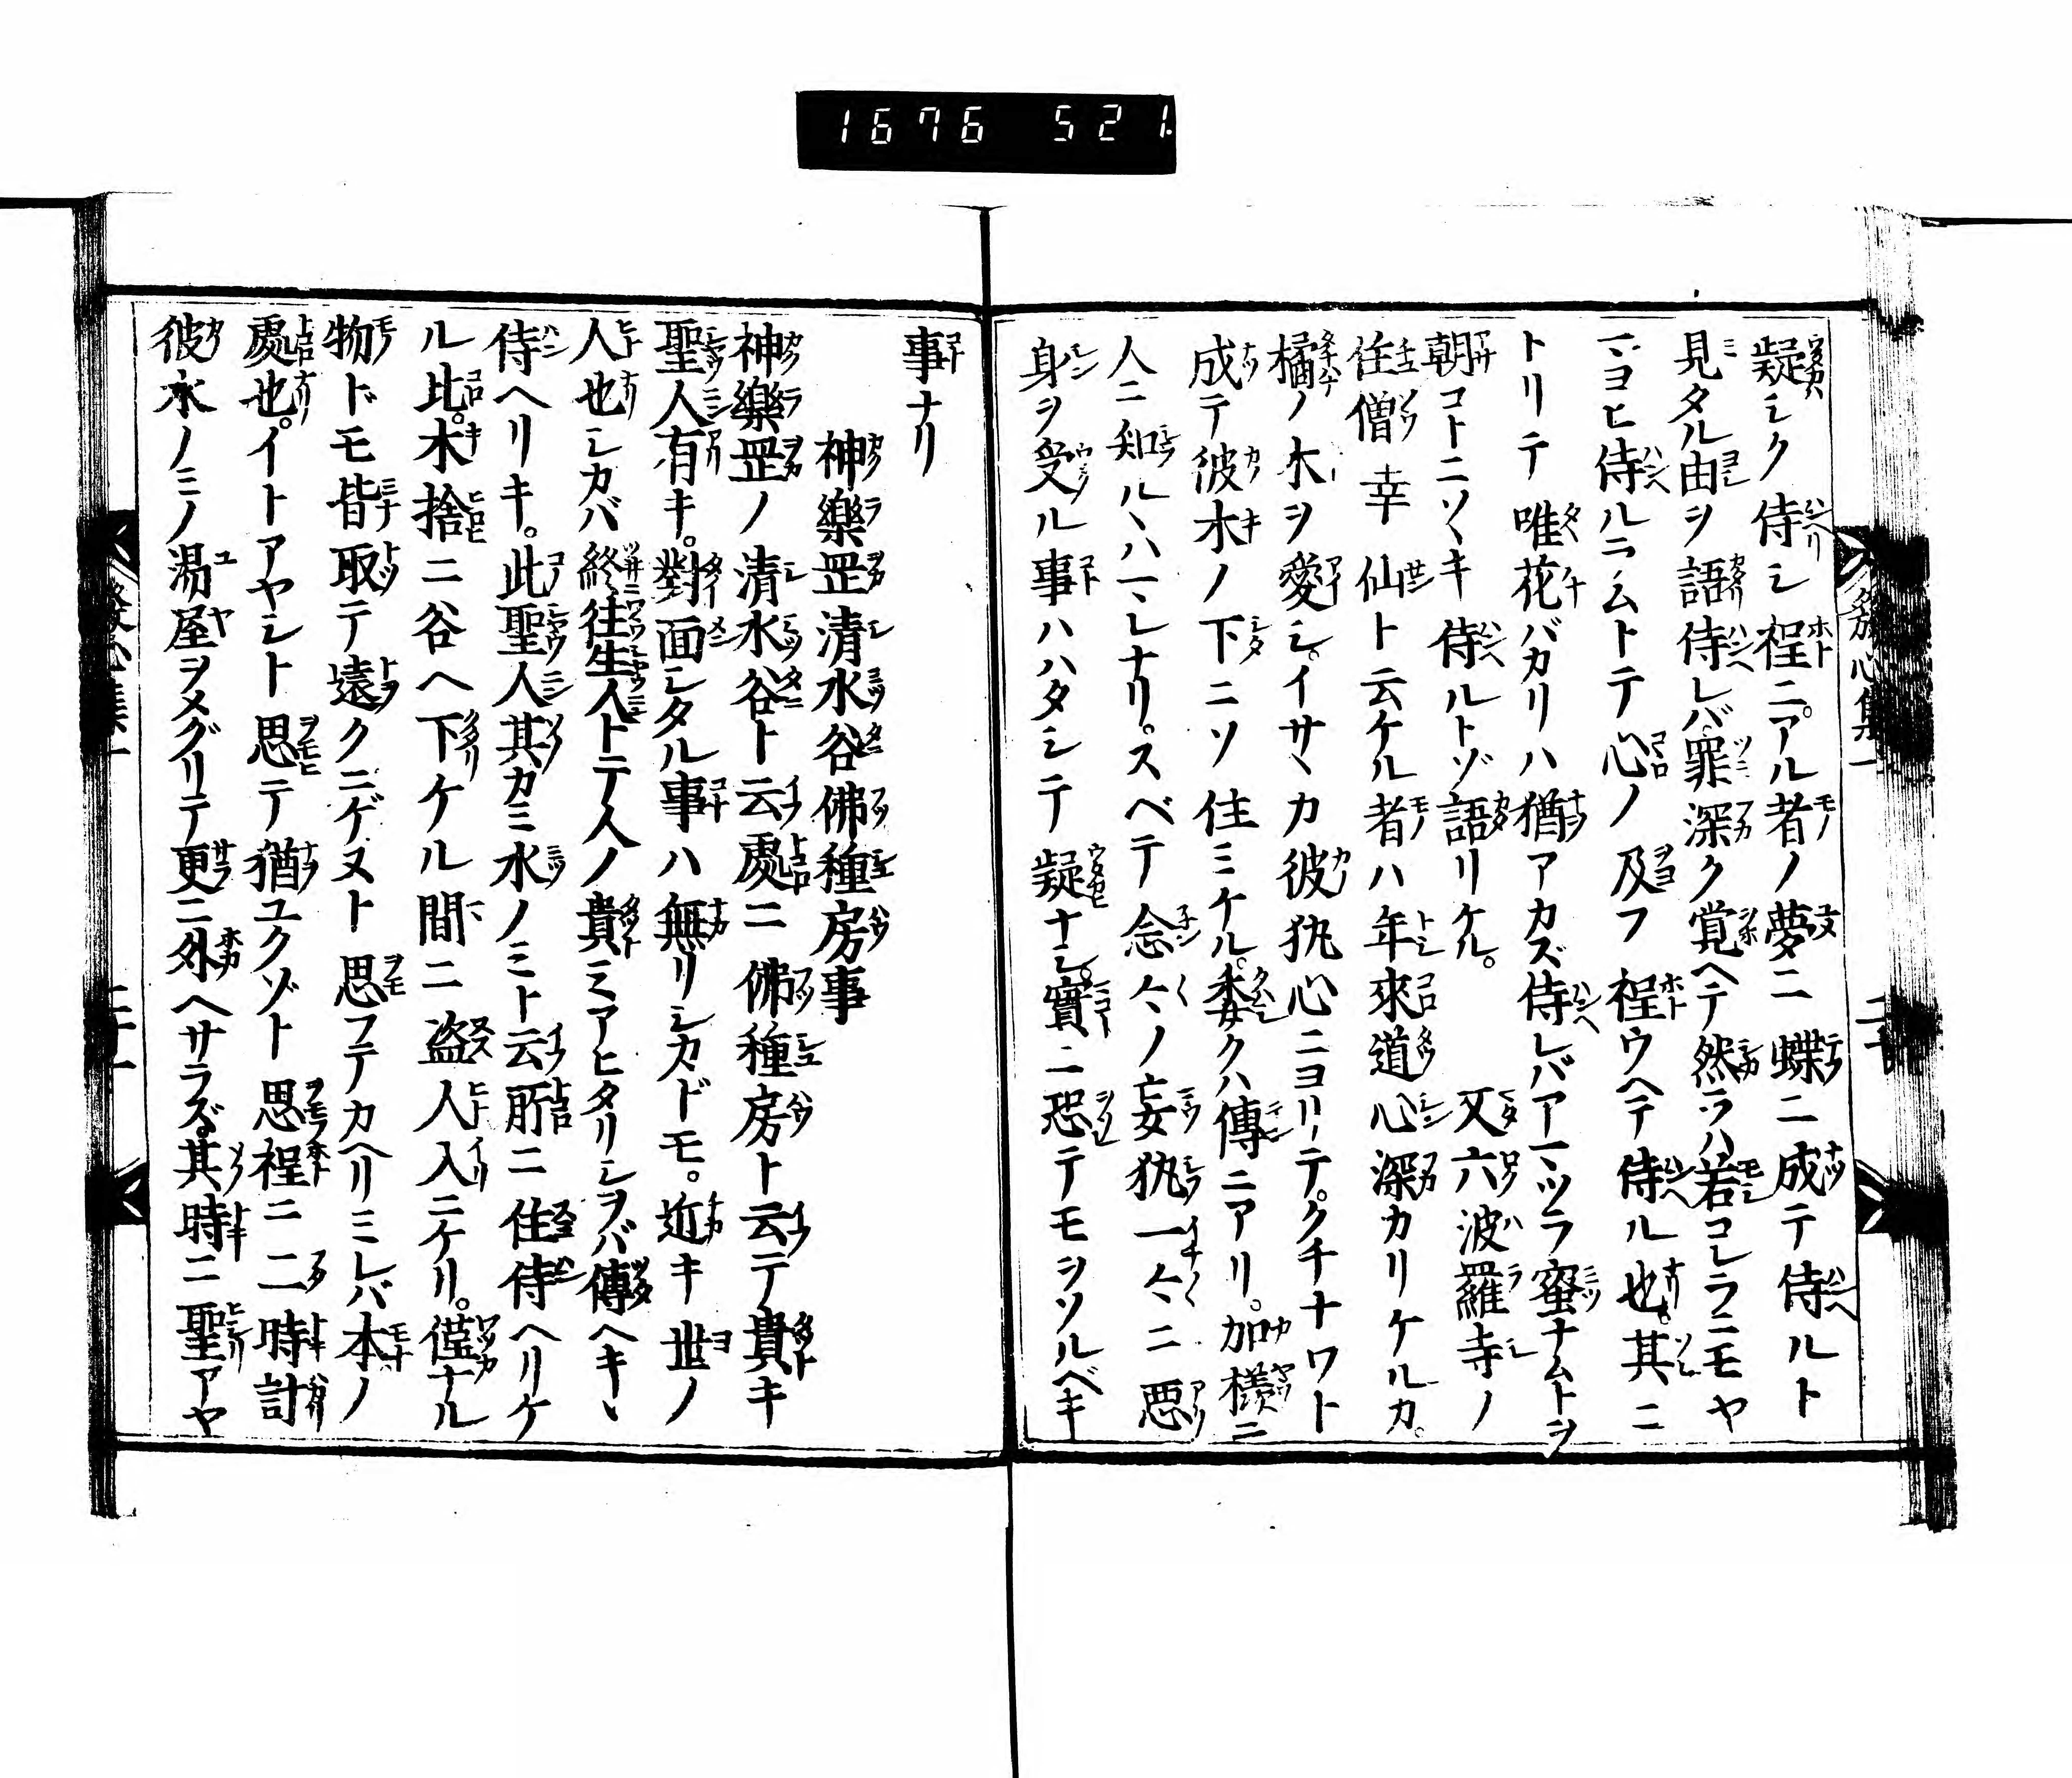 1676 521.
疑シク侍シ程ニ。アル者ノ夢ニ蝶ニ成テ侍ルト
見タル由ヲ語侍レバ。罪深ク覚ヘテ然ラハ若コレラニモヤ
マヨヒ侍ルラムトテ心ノ及フ程ウヘテ侍ル也。其ニ
トリテ唯花バカリハ猶アカズ侍レバアマツラ蜜ナムトヲ
朝コトニソヽキ侍ルトゾ語リケル。 又六波羅寺ノ
住僧幸仙ト云ケル者ハ年來道心深カリケルカ。
橘ノ木ヲ愛シ。イサヽカ彼執心ニヨリテ。クチナワト
成テ彼木ノ下ニソ住ミケル。委クハ傳ニアリ。加様ニ
人ニ知ルヽハマレナリ。スベテ念々ノ妄執一々ニ悪
身ヲ受ル事ハハタシテ疑ナシ。實ニ恐テモヲソルベキ
事ナリ
神樂罡清水谷佛種房事
神樂罡ノ清水谷ト云處ニ佛種房ト云テ貴キ
聖人有キ。對面シタル事ハ無リシカドモ。近キ世ノ
人也シカバ終往生人トテ人ノ貴ミアヒタリシヲバ傳ヘキヽ
侍ヘリキ。此聖人其カミ水ノミト云所ニ住侍ヘリケ
ル比。木捨ニ谷ヘ下ケル間ニ盗人入ニケリ。僅ナル
物ドモ皆取テ遠クニゲヌト思フテカヘリミレバ本ノ
處也。イトアヤシト思テ猶ユクゾト思程ニ二時計
彼水ノミノ湯屋ヲメグリテ更ニ外ヘサラズ。其時ニ聖アヤ
發心集一